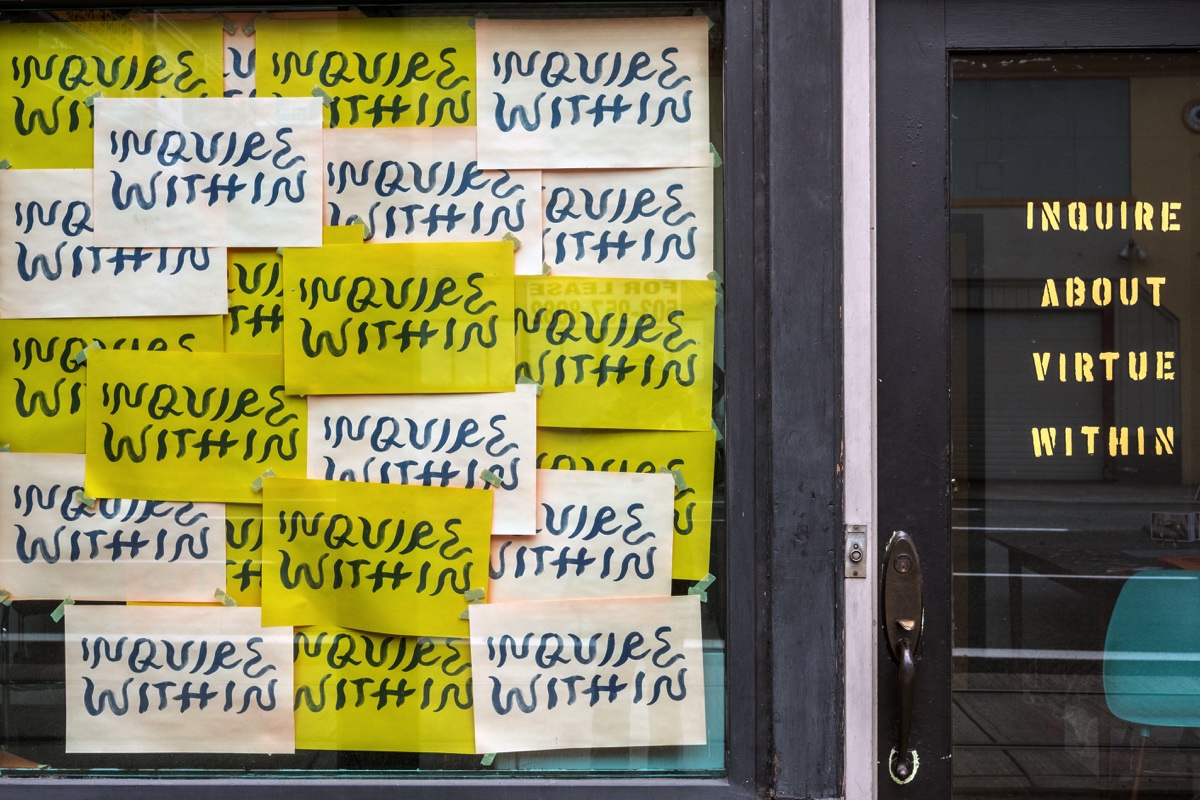 INQUIRE
WI
INQUIRE
WITHIN
INQUIRE
WITHIN
INQUIRE
WITHIN
INQ
WITHIN
INQUIRE
WITHIN
QUIRE
ITHIN
INQUIRE
WITHIN
FOR LEASE
INQUIRE
WITHIN
INQUIRE
WI
INQUIRE
WITHIN
INQUIRE
WITHIN
INQUIRE
WITHIN
INQUIRE
WITHIN
UIRE
ITHIN
INQUIRE
WITHIN
NQUIRE
WITHIN
INQUIRE
WITHIN
INQUIRE
ABOUT
VIRTUE
WITHIN